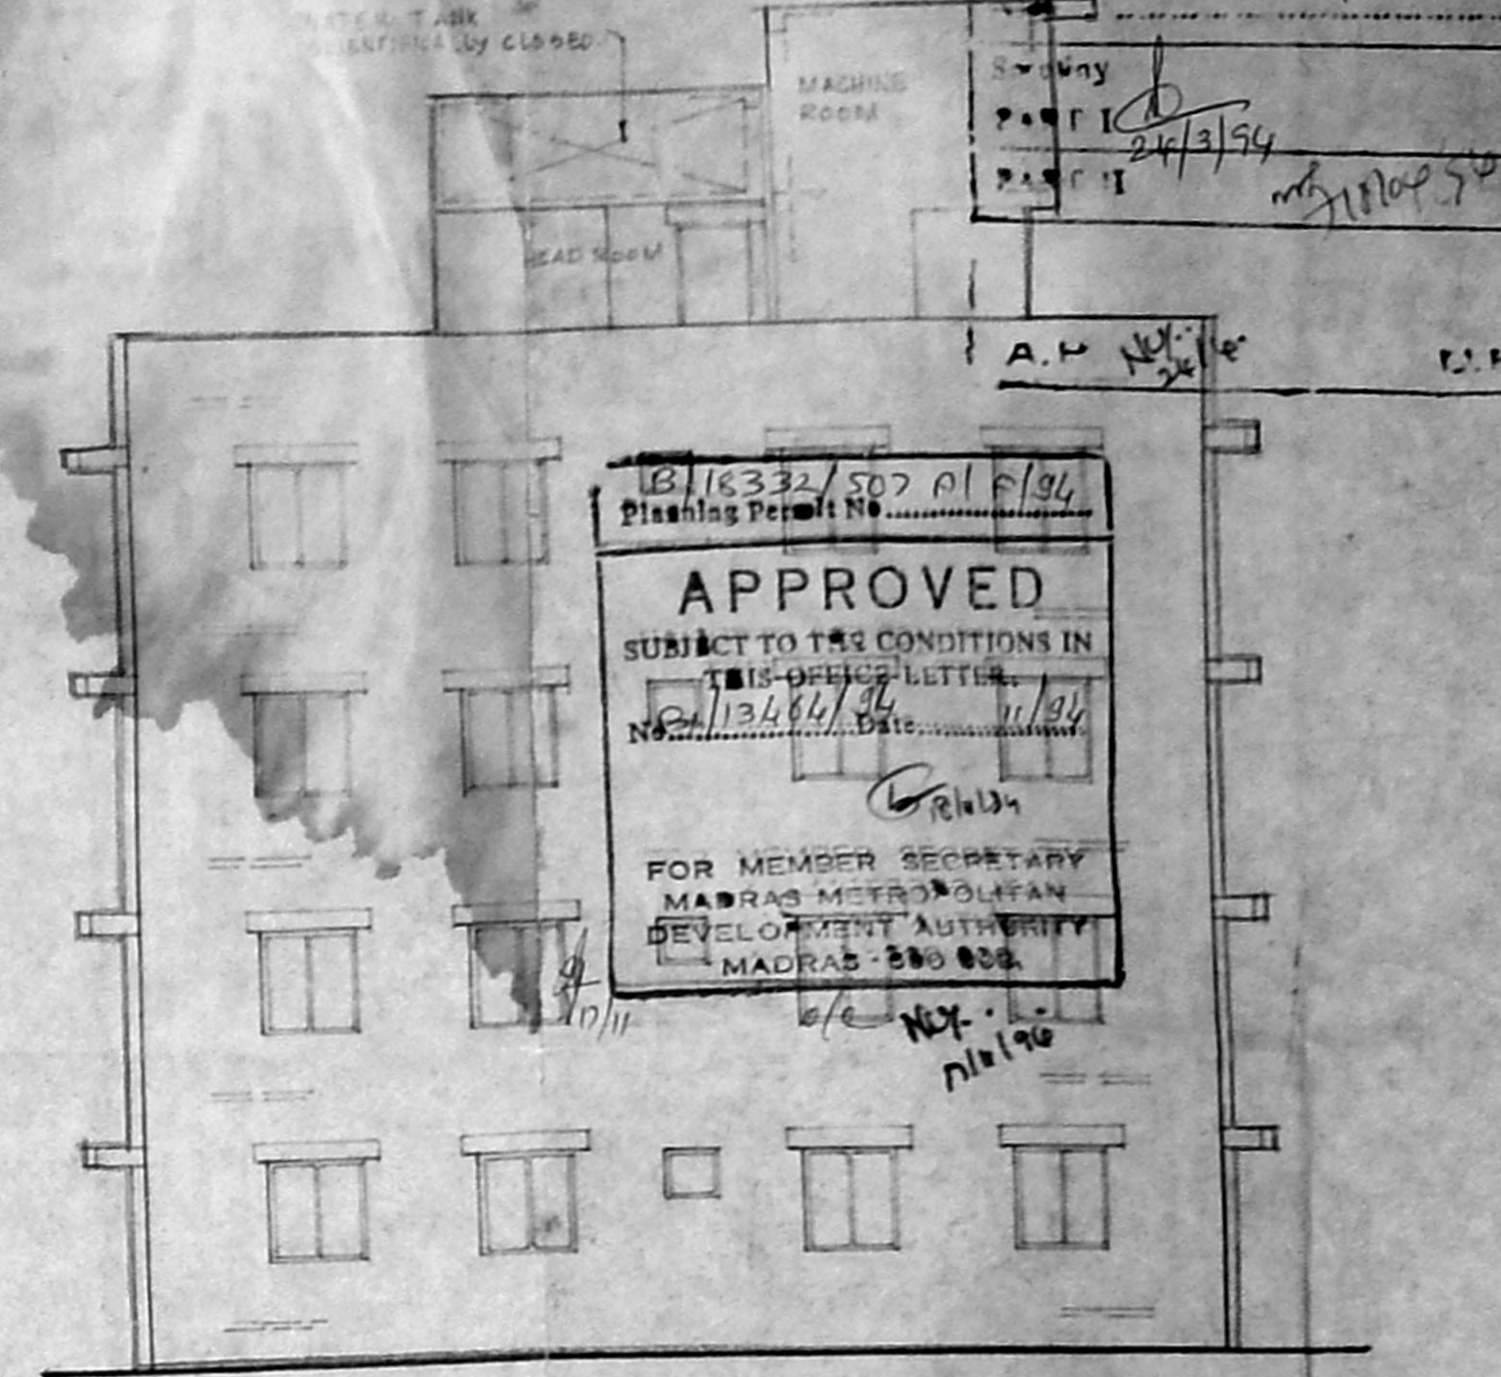 WATER TANK
SCIENTIFICALLY CLOSED
MACHINE
ROOM
Scrutiny
PART I
24/3/94
PART II
HEAD ROOM
A.P
B/18332/507 A/F/94
Planning Permit No
APPROVED
SUBJECT TO THE CONDITIONS IN
THIS OFFICE LETTER.
No. B1/13464/94 Date 11/94
FOR MEMBER SECRETARY
MADRAS METROPOLITAN
DEVELOPMENT AUTHORITY
MADRAS
17/11